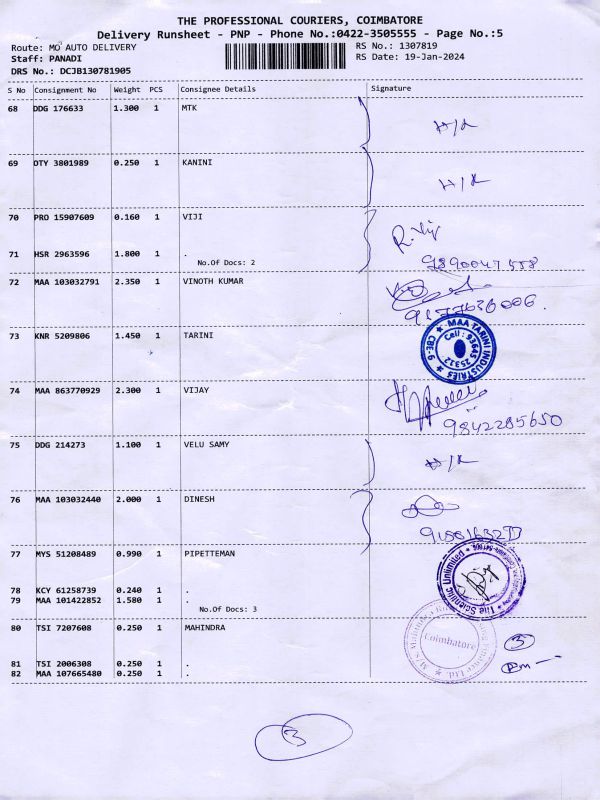 THE PROFESSIONAL COURIERS, COIMBATORE
Delivery Runsheet - PNP - Phone No.:0422-3505555 - Page No.:5
Route: MO AUTO DELIVERY RS No.: 1307819
Staff: PANADI RS Date: 19-Jan-2024
DRS No.: DCJB130781905
S No Consignment No Weight PCS Consignee Details Signature
68 DDG 176633 1.300 1 MTK H/R
69 DTY 3801989 0.250 1 KANINI H/R
70 PRO 15907609 0.160 1 VIJI R. Viji
71 HSR 2963596 1.800 1 .
No.Of Docs: 2
72 MAA 103032791 2.350 1 VINOTH KUMAR
73 KNR 5209806 1.450 1 TARINI
★ MAA TARINI INDUSTRIES ★ CBE-6
Cell : 93645 25312
74 MAA 863770929 2.300 1 VIJAY
9842285650
75 DDG 214273 1.100 1 VELU SAMY H/R
76 MAA 103032440 2.000 1 DINESH
77 MYS 51208489 0.990 1 PIPETTEMAN
78 KCY 61258739 0.240 1 .
79 MAA 101422852 1.580 1 .
No.Of Docs: 3
80 TSI 7207608 0.250 1 MAHINDRA
Coimbatore
3
81 TSI 2006308 0.250 1 .
82 MAA 107665480 0.250 1 .
3